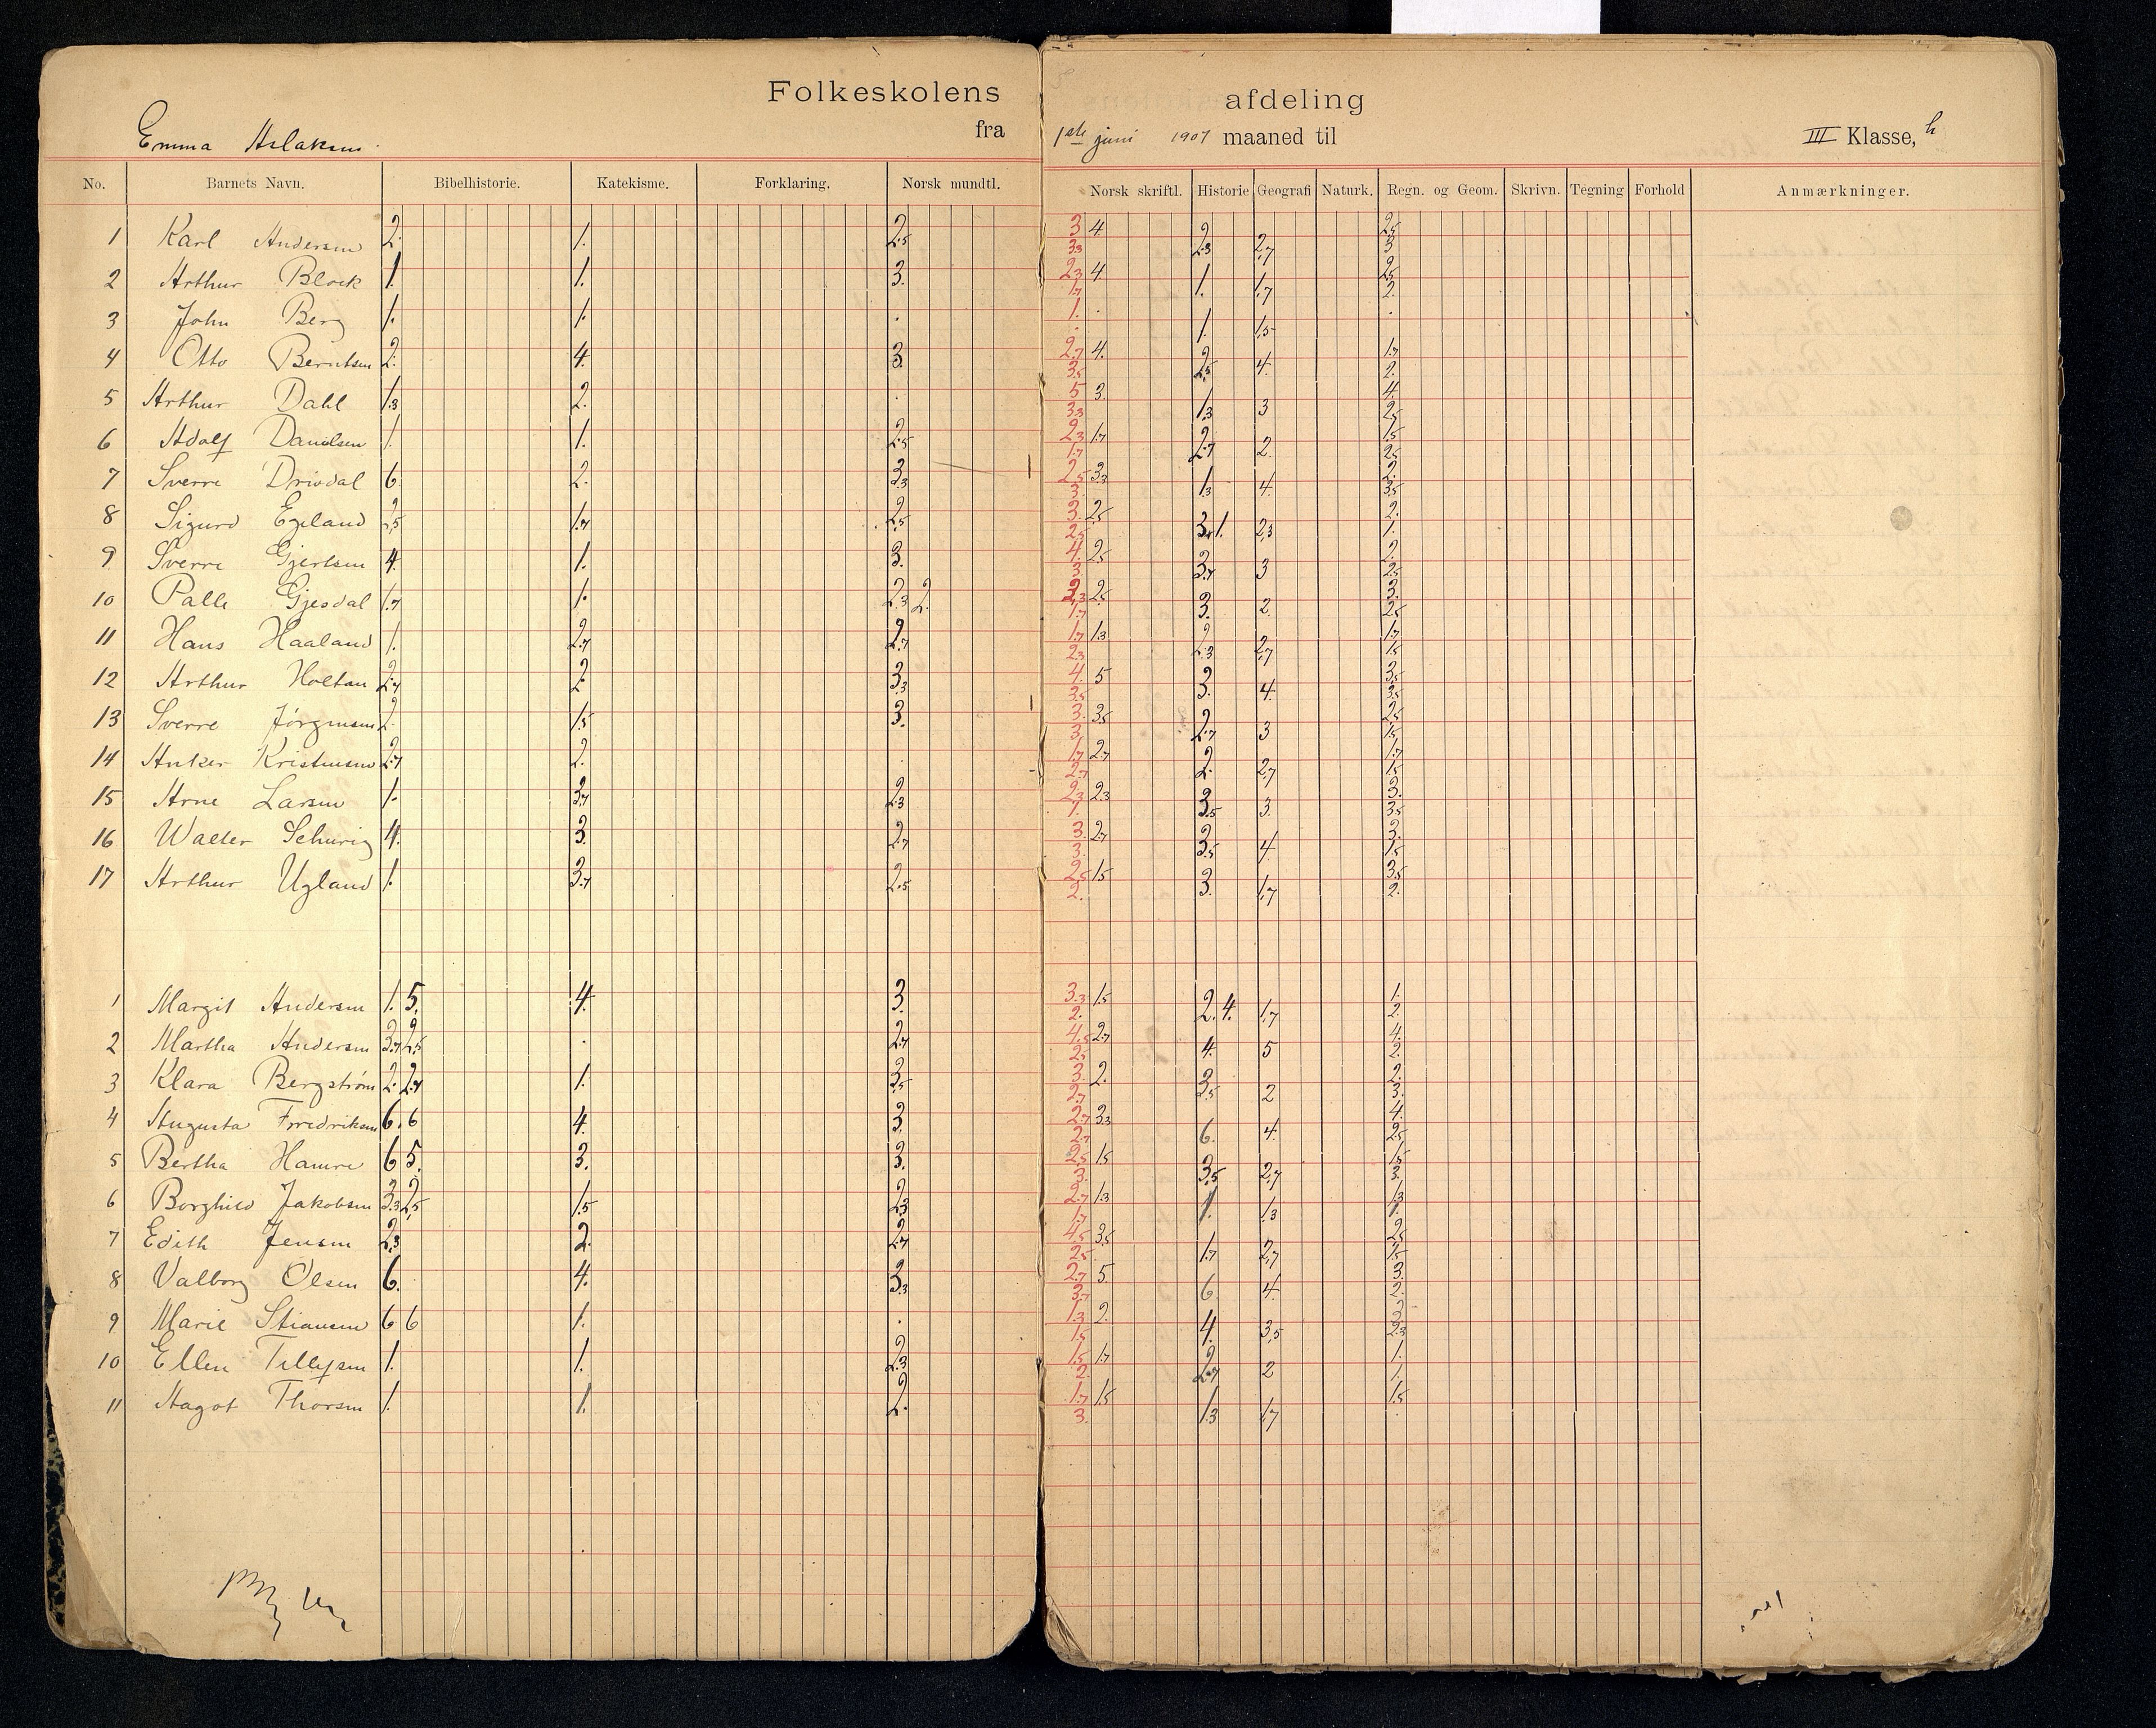 Folkeskolens afdeling
Emma Aslaksen fra 1ste juni 1907 maaned til III Klasse, h
No. Barnets Navn. Bibelhistorie. Katekisme. Forklaring. Norsk mundtl. Norsk skriftl. Historie Geografi Naturk. Regn. og Geom. Skrivn. Tegning Forhold Anmærkninger.
1 Karl Andersen 2. 1. 2.5 3 4 3.3 2.3 2.7 2.5 3
2 Arthur Block 1. 1. 3. 2.3 4 1.7 1. 1.7 2.5 2.
3 John Berg 1. 1. . 1. . 1. 1.5 .
4 Otto Berntsen 2. 4. 3. 2.7 4. 3.5 2.5 4. 1.7 2.
5 Arthur Dahl 1.3 2. . 5 3. 3.3 1.3 3 4. 2.5
6 Adolf Danielsen 1. 1. 2.5 2.3 1.7 1.7 2.7 2. 1.5 2.5
7 Sverre Drivdal 6. 2. 3.3 2.5 3.3 3. 1.3 4. 2. 3.5
8 Sigurd Egeland 2.5 1.7 2.5 3. 2.5 2.5 3.7 1. 2.3 2. 1.
9 Sverre Gjertsen 4. 1. 3. 4. 2.5 3. 3.7 3 2. 2.5
10 Palle Gjesdal 1.7 1. 2.3 2. 2.3 2.5 1.7 3. 2. 3. 2.5
11 Hans Haaland 1. 2.7 2.7 1.7 1.3 2.3 2.3 2.7 1.7 1.5
12 Arthur Holtan 2.7 2 3.3 4. 5 3.5 3. 4. 3.5 3.5
13 Sverre Jørgensen 2. 1.5 3. 3. 3.5 3. 2.7 3 2.5 1.5
14 Anker Kristensen 2.7 2. . 1.7 2.7 2.7 2. 2.7 1.7 1.5
15 Arne Larsen 1. 3.7 2.3 2.3 2.3 1. 3.5 3. 3. 3.5
16 Walter Schurig 4. 3. 2.7 3. 2.7 3. 3.5 4. 3. 1.5
17 Arthur Ugland 1. 3.7 2.5 2.5 1.5 2. 3. 1.7 3.5 2.
1 Margit Andersen 1. 5. 4. 3. 3.3 1.5 2. 2. 4. 1.7 1. 2.
2 Martha Andersen 3.7 2.5 . 2.7 4.5 2.7 2.5 4. 5 4. 2.
3 Klara Bergstrøm 2. 2.7 1. 3.5 3. 2. 2.7 3.5 2 2. 3.
4 Augusta Fredriksen 6. 6 4. 3. 2.7 3.3 2.7 6. 4. 4. 2.5
5 Bertha Hamre 6 5. 3. 3. 2.5 1.5 3. 3.5 2.7 1.5 3.
6 Borghild Jakobsen 3.3 2.5 1.5 2.3 2.7 1.3 1.7 1. 1.3 1.3 1.
7 Edith Jensen 2.3 2. 2.7 4.5 3.5 2.5 1.7 2.7 2.5 1.5
8 Valborg Olsen 6. 4. 3.3 2.7 5. 3.7 6. 4. 3. 2.
9 Marie Stiansen 6 6 1. . 1.3 2. 1.5 4. 3.5 3. 2.3
10 Ellen Tellefsen 1. 1. 2.3 1.5 1.7 2. 2.7 2 1. 1.
11 Aagot Thorsen 1. 1. 2. 1.7 1.5 3. 1.3 1.7 1.5 .